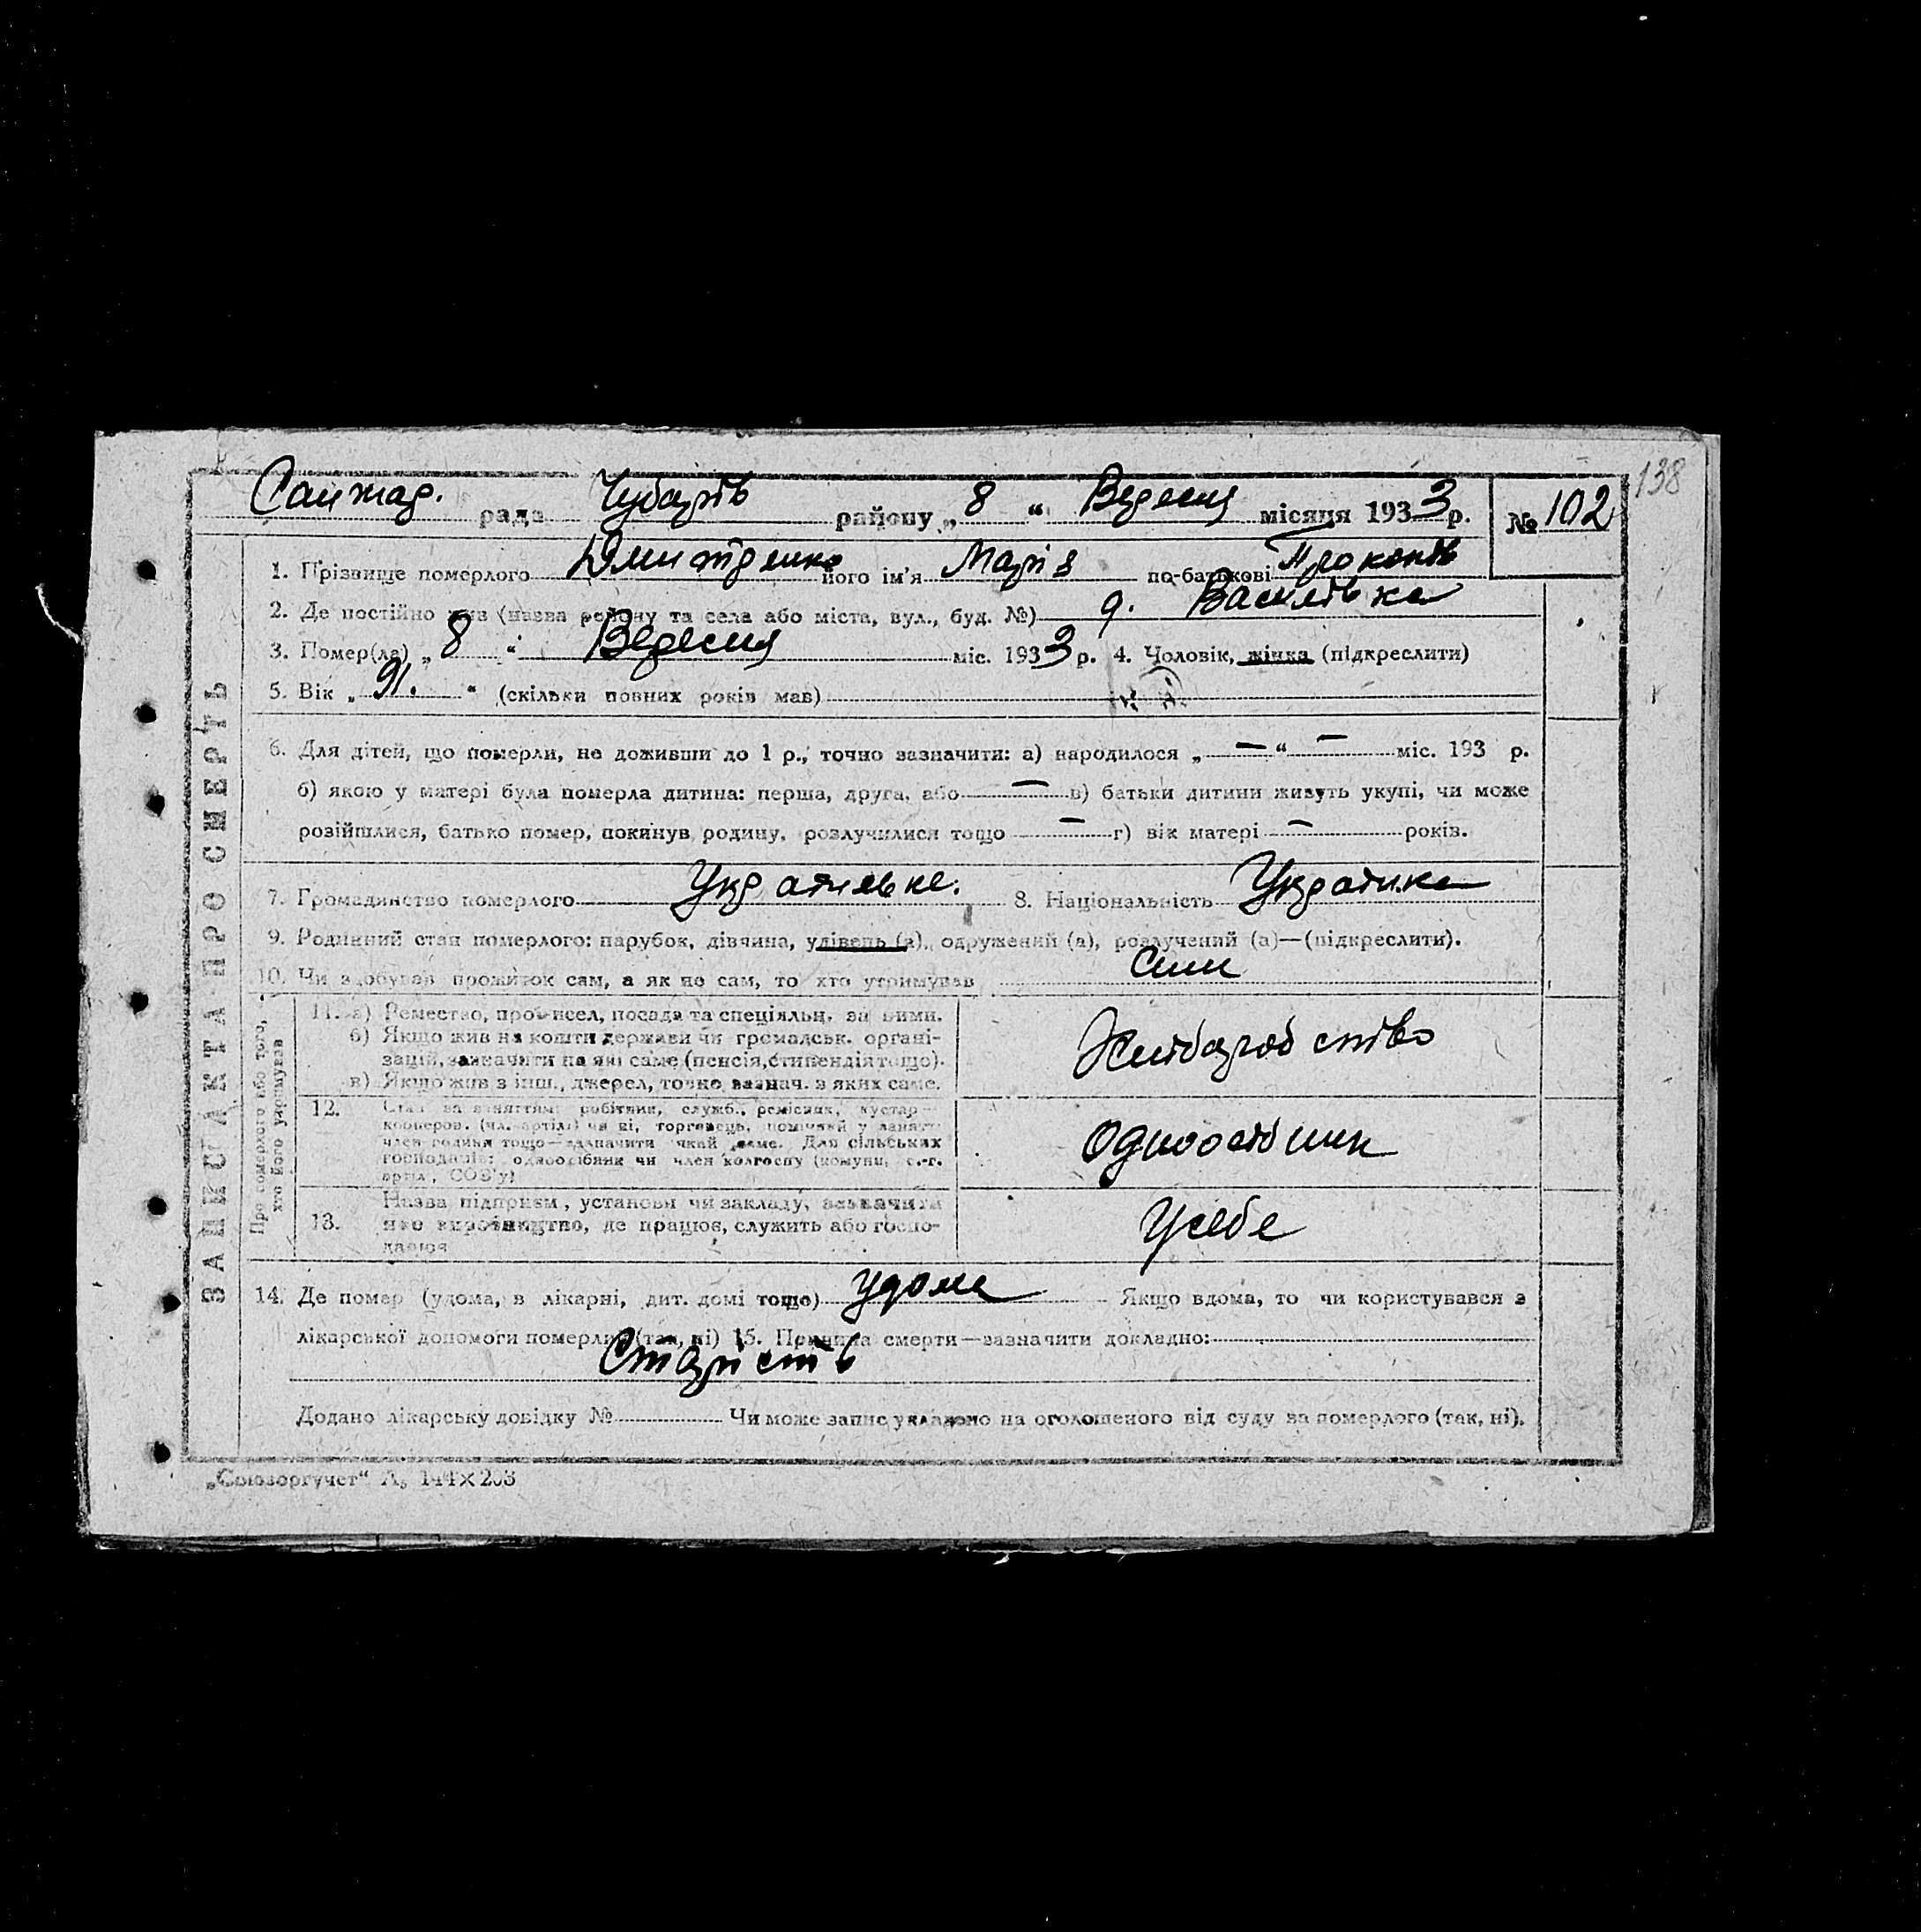 138
Санжар. рада Чубарів району „ 8 “ Вересня місяця 1933 р. № 102
1. Прізвище померлого Дмитренко його ім'я Марія по-батькові Прокопів
2. Де постійно жив (назва району та села або міста, вул., буд. №) д. Василівка
3. Помер(ла) „ 8 “ Вересня міс. 1933 р. 4. Чоловік, жінка (підкреслити)
5. Вік „ 91. “ (скільки повних років мав)
6. Для дітей, що померли, не доживши до 1 р., точно зазначити: а) народилося „ — “ — міс. 193 р.
б) якою у матері була померла дитина: перша, друга, або — в) батьки дитини живуть укупі, чи може
розійшлися, батько помер, покинув родину, розлучилися тощо — г) вік матері — років.
7. Громадянство померлого Українське. 8. Національність Українка
9. Родинний стан померлого: парубок, дівчина, удівець (а), одружений (а), розлучений (а)—(підкреслити).
10. Чи здобував прожиток сам, а як не сам, то хто утримував Син
ЗАПИС АКТА ПРО СМЕРТЬ
Про померлого або того,
хто його утримував
11. а) Ремество, промисел, посада та спеціяльн. за ними.
б) Якщо жив на кошти держави чи громадськ. органі-
зацій, зазначити на які саме (пенсія, стипендія тощо).
в) Якщо жив з інш., джерел, точно зазнач. з яких саме.
Хліборобство
12. Стан за заняттям: робітник, служб., ремісник, кустар—
член родини тощо—зазначити який саме. Для сільських
господарів: одноосібник чи член колгоспу (комуни, с.-г.
Одноосібник
13. Назва підприєм, установи чи закладу, зазначити
яке виробництво, де працює, служить або госпо-
дарює
У себе
14. Де помер (удома, в лікарні, дит. домі тощо) удома Якщо вдома, то чи користувався з
лікарської допомоги померлий (так, ні) 15. Причина смерти—зазначити докладно:
Старість
Додано лікарську довідку № Чи може запис укладено на оголошеного від суду за померлого (так, ні).
„Союзоргучет“ А₅ 144×203